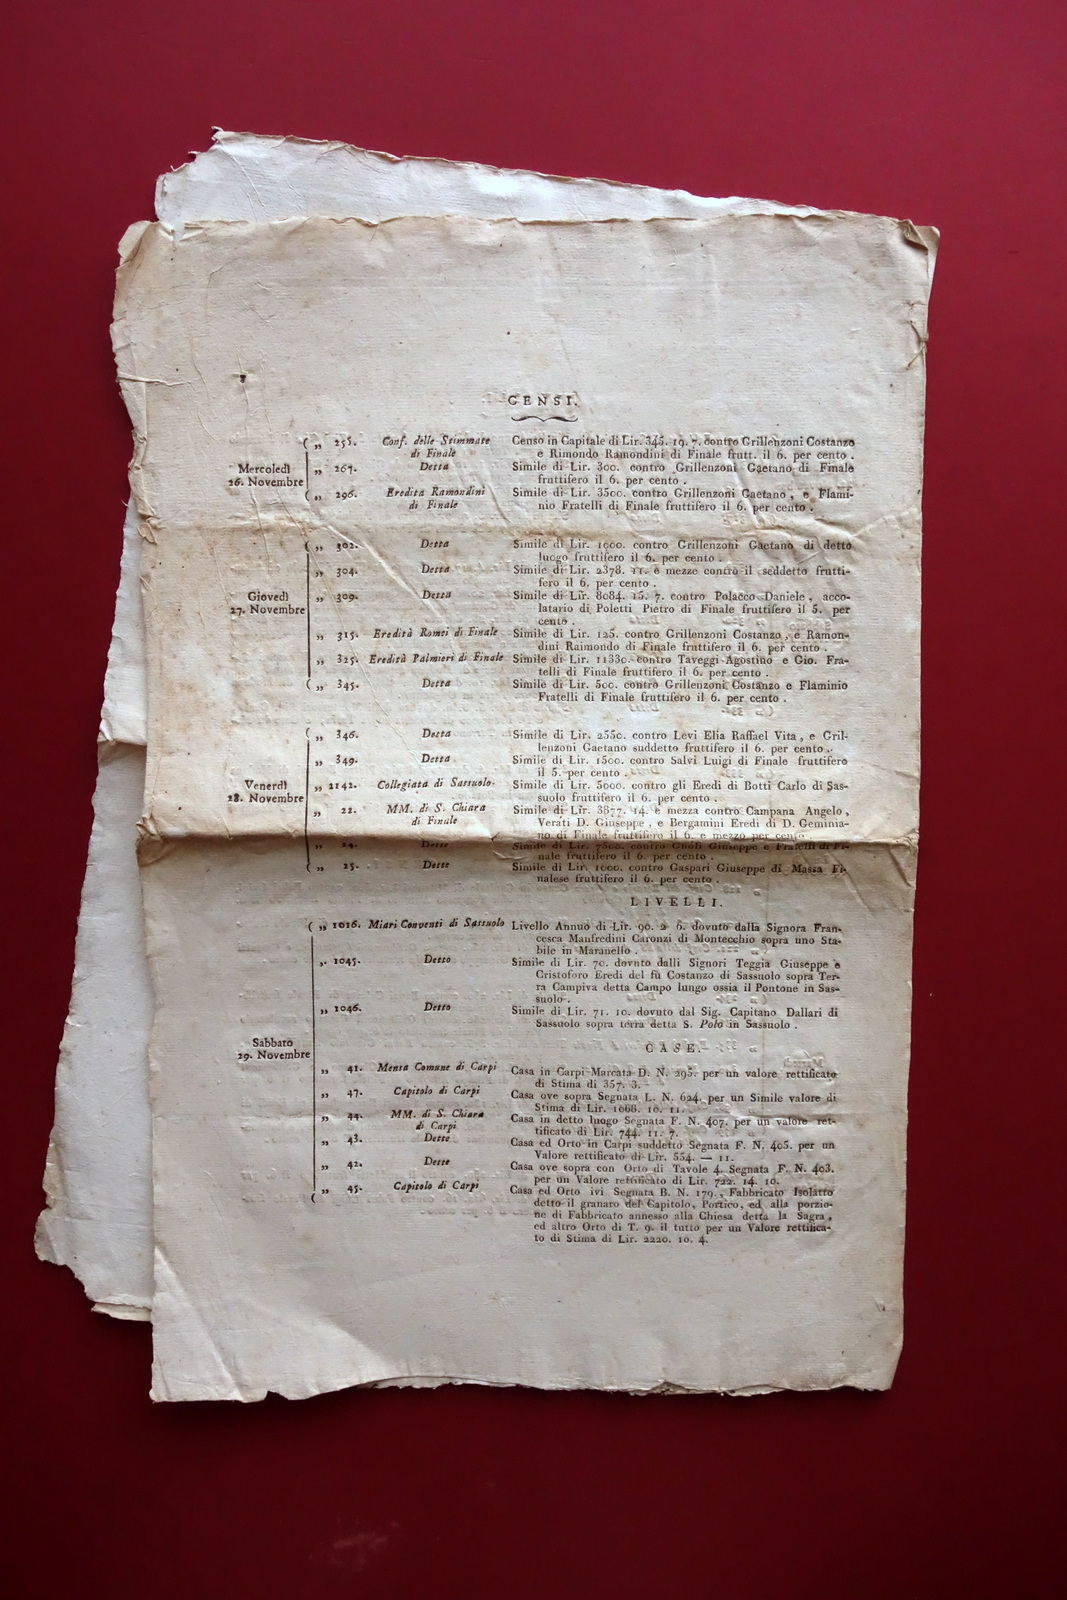 CENSI.
( „ 255. Conf. delle Stimmate Censo in Capitale di Lir. 345. 19. 7. contro Grillenzoni Costanzo
di Finale e Rimondo Ramondini di Finale frutt. il 6. per cento .
Mercoledì „ 267. Detta Simile di Lir. 300. contro Grillenzoni Gaetano di Finale
26. Novembre fruttifero il 6. per cento .
( „ 296. Eredita Ramondini Simile di Lir. 3500. contro Grillenzoni Gaetano , e Flami-
di Finale nio Fratelli di Finale fruttifero il 6. per cento .
( „ 302. Detta Simile di Lir. 1000. contro Grillenzoni Gaetano di detto
luogo fruttifero il 6. per cento .
„ 304. Detta Simile di Lir. 2378. 11. e mezze contro il seddetto frutti-
fero il 6. per cento .
Giovedì „ 309. Detta Simile di Lir. 8084. 15. 7. contro Polacco Daniele , acco-
27. Novembre latario di Poletti Pietro di Finale fruttifero il 5. per
cento .
„ 315. Eredità Romei di Finale Simile di Lir. 125. contro Grillenzoni Costanzo , e Ramon-
dini Raimondo di Finale fruttifero il 6. per cento .
„ 325. Eredità Palmieri di Finale Simile di Lir. 11330. contro Taveggi Agostino e Gio. Fra-
telli di Finale fruttifero il 6. per cento .
( „ 345. Detta Simile di Lir. 500. contro Grillenzoni Costanzo e Flaminio
Fratelli di Finale fruttifero il 6. per cento .
( „ 346. Detta Simile di Lir. 2550. contro Levi Elia Raffael Vita , e Gril-
lenzoni Gaetano suddetto fruttifero il 6. per cento .
„ 349. Detta Simile di Lir. 1500. contro Salvi Luigi di Finale fruttifero
il 5. per cento .
Venerdì „ 2142. Collegiata di Sassuolo. Simile di Lir. 5000. contro gli Eredi di Botti Carlo di Sas-
28. Novembre suolo fruttifero il 6. per cento .
„ 22. MM. di S. Chiara Simile di Lir. 3877. 14. e mezza contro Campana Angelo ,
di Finale Verati D. Giuseppe , e Bergamini Eredi di D. Geminia-
no di Finale fruttifero il 6. e mezzo per cento
„ 24. Dette Simile di Lir. 7500. contro Giuseppe e Fratelli di Fi-
nale fruttifero il 6. per cento .
„ 25. Dette Simile di Lir. 1000. contro Gaspari Giuseppe di Massa Fi-
nalese fruttifero il 6. per cento .
LIVELLI.
( „ 1016. Miari Conventi di Sassuolo Livello Annuo di Lir. 90. 2 6. dovuto dalla Signora Fran-
cesca Manfredini Caronzi di Montecchio sopra uno Sta-
bile in Maranello .
„ 1045. Detto Simile di Lir. 70. dovuto dalli Signori Teggia Giuseppe e
Cristoforo Eredi del fù Costanzo di Sassuolo sopra Ter-
ra Campiva detta Campo lungo ossia il Pontone in Sas-
suolo .
„ 1046. Detto Simile di Lir. 71. 10. dovuto dal Sig. Capitano Dallari di
Sassuolo sopra terra detta S. Polo in Sassuolo .
Sabbato
29. Novembre
CASE.
„ 41. Mensa Comune di Carpi Casa in Carpi Marcata D. N. 295. per un valore rettificato
di Stima di 357. 3.
„ 47. Capitolo di Carpi Casa ove sopra Segnata L. N. 624. per un Simile valore di
Stima di Lir. 1068. 10. 11.
„ 44. MM. di S. Chiara Casa in detto luogo Segnata F. N. 407. per un valore ret-
di Carpi tificato di Lir. 744. 11. 7.
„ 43. Dette Casa ed Orto in Carpi suddetto Segnata F. N. 405. per un
Valore rettificato di Lir. 554. — 11.
„ 42. Dette Casa ove sopra con Orto di Tavole 4. Segnata F. N. 403.
per un Valore rettificato di Lir. 722. 14. 10.
„ 45. Capitolo di Carpi Casa ed Orto ivi Segnata B. N. 179. , Fabbricato Isolatto
( detto il granaro del Capitolo, Portico, ed alla porzio-
ne di Fabbricato annesso alla Chiesa detta la Sagra ,
ed altro Orto di T. 9. il tutto per un Valore rettifica-
to di Stima di Lir. 2220. 10. 4.